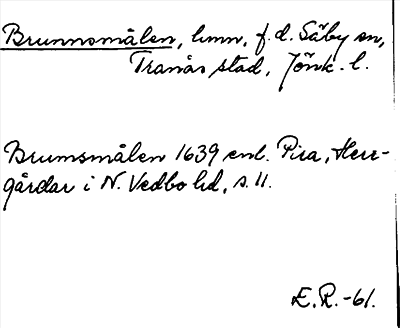 Brunnsmålen, hmn, f.d. Säby sn,
Tranås stad, Jönk. l.
Brumsmålen 1639 enl. Pira, Herr-
gårdar i N. Vedbo hd, s. 11.
E.R. -61.